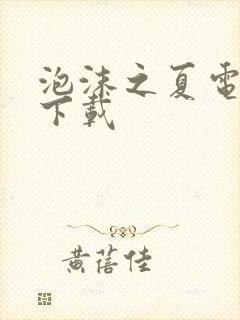 泡沫之夏電
下載
黄蓓佳